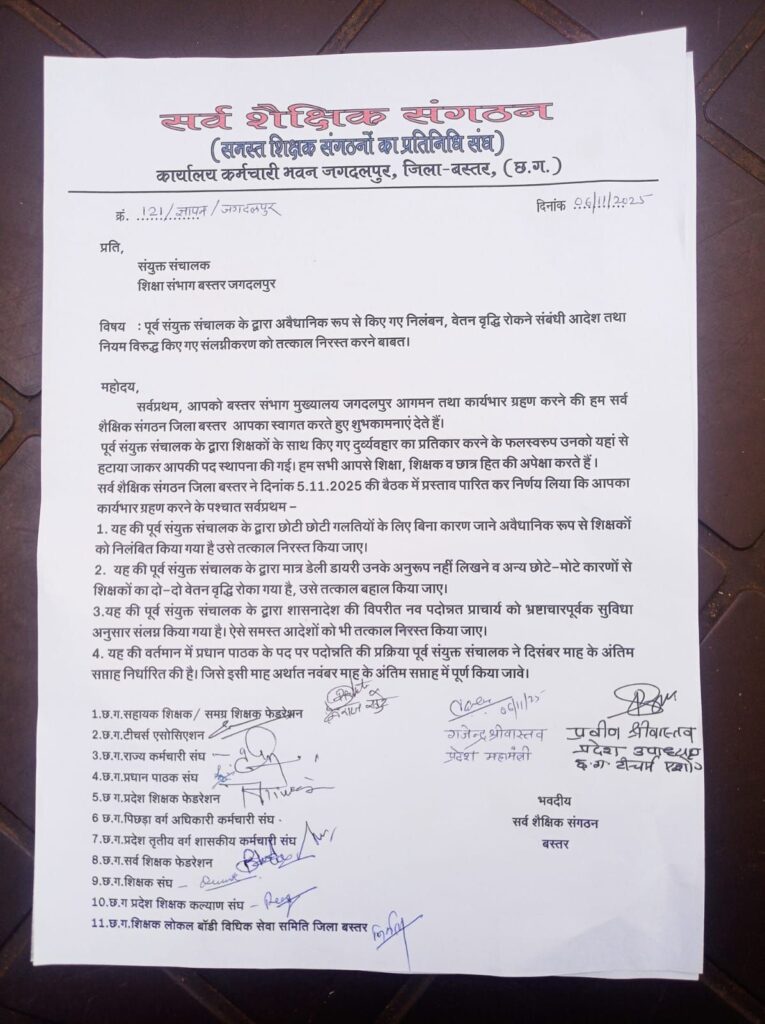 सर्व शैक्षिक संगठन
(समस्त शिक्षक संगठनों का प्रतिनिधि संघ)
कार्यालय कर्मचारी भवन जगदलपुर, जिला-बस्तर, (छ.ग.)
क्रं. 121/ज्ञापन/जगदलपुर
दिनांक 06/11/2025
प्रति,
संयुक्त संचालक
शिक्षा संभाग बस्तर जगदलपुर
विषय : पूर्व संयुक्त संचालक के द्वारा अवैधानिक रूप से किए गए निलंबन, वेतन वृद्धि रोकने संबंधी आदेश तथा
नियम विरुद्ध किए गए संलग्नीकरण को तत्काल निरस्त करने बाबत।
महोदय,
सर्वप्रथम, आपको बस्तर संभाग मुख्यालय जगदलपुर आगमन तथा कार्यभार ग्रहण करने की हम सर्व
शैक्षिक संगठन जिला बस्तर आपका स्वागत करते हुए शुभकामनाएं देते हैं।
पूर्व संयुक्त संचालक के द्वारा शिक्षकों के साथ किए गए दुर्व्यवहार का प्रतिकार करने के फलस्वरुप उनको यहां से
हटाया जाकर आपकी पद स्थापना की गई। हम सभी आपसे शिक्षा, शिक्षक व छात्र हित की अपेक्षा करते हैं ।
सर्व शैक्षिक संगठन जिला बस्तर ने दिनांक 5.11.2025 की बैठक में प्रस्ताव पारित कर निर्णय लिया कि आपका
कार्यभार ग्रहण करने के पश्चात सर्वप्रथम –
1. यह की पूर्व संयुक्त संचालक के द्वारा छोटी छोटी गलतियों के लिए बिना कारण जाने अवैधानिक रूप से शिक्षकों
को निलंबित किया गया है उसे तत्काल निरस्त किया जाए।
2. यह की पूर्व संयुक्त संचालक के द्वारा मात्र डेली डायरी उनके अनुरूप नहीं लिखने व अन्य छोटे–मोटे कारणों से
शिक्षकों का दो–दो वेतन वृद्धि रोका गया है, उसे तत्काल बहाल किया जाए।
3.यह की पूर्व संयुक्त संचालक के द्वारा शासनादेश की विपरीत नव पदोन्नत प्राचार्य को भ्रष्टाचारपूर्वक सुविधा
अनुसार संलग्न किया गया है। ऐसे समस्त आदेशों को भी तत्काल निरस्त किया जाए।
4. यह की वर्तमान में प्रधान पाठक के पद पर पदोन्नति की प्रक्रिया पूर्व संयुक्त संचालक ने दिसंबर माह के अंतिम
सप्ताह निर्धारित की है। जिसे इसी माह अर्थात नवंबर माह के अंतिम सप्ताह में पूर्ण किया जावे।
1.छ.ग.सहायक शिक्षक/ समग्र शिक्षक फेडरेशन
06/11/25
2.छ.ग.टीचर्स एसोसिएशन
गजेन्द्र श्रीवास्तव
प्रवीण श्रीवास्तव
3.छ.ग.राज्य कर्मचारी संघ
प्रदेश महामंत्री
प्रदेश उपाध्यक्ष
4.छ.ग.प्रधान पाठक संघ
छ.ग. टीचर्स एसो०
5.छ ग.प्रदेश शिक्षक फेडरेशन
6 छ.ग.पिछड़ा वर्ग अधिकारी कर्मचारी संघ
7.छ.ग.प्रदेश तृतीय वर्ग शासकीय कर्मचारी संघ
8.छ.ग.सर्व शिक्षक फेडरेशन
9.छ.ग.शिक्षक संघ
10.छ.ग प्रदेश शिक्षक कल्याण संघ
11.छ.ग.शिक्षक लोकल बॉडी विधिक सेवा समिति जिला बस्तर
भवदीय
सर्व शैक्षिक संगठन
बस्तर